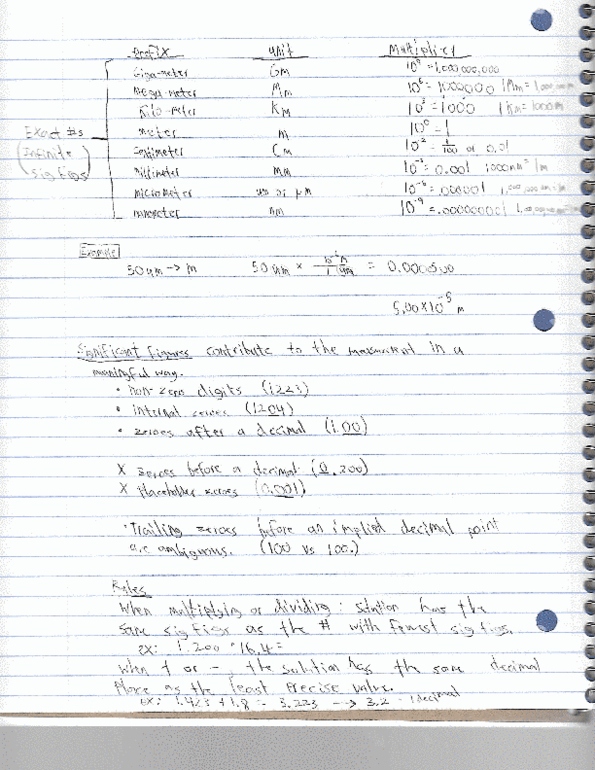 Prefix unit Multiplier
Giga-meter Gm 10⁹ = 1,000,000,000
Mega-meter Mm 10⁶ = 1000000 1Mm = 1,000,000m
Kilo-meter Km 10³ = 1000 1Km = 1000m
meter m 10⁰ = 1
Centimeter Cm 1/100 or 0.01
Millimeter mm 10⁻³ = 0.001 1000mm = 1m
micrometer um or μm 10⁻⁶ = .00001
nanometer nm 10⁻⁹
Exact #s
(Infinite
sig figs)
Example
50 um → m 50 um × = 0.000500
5.00×10⁻⁵ m
Significant figures contribute to the measurement in a
meaningful way.
• non-zero digits (1223)
• internal zeroes (1204)
• zeroes after a decimal (1.00)
X zeroes before a decimal (0.200)
X Placeholder zeroes (0.001)
• Trailing zeroes before an implied decimal point
are ambiguous. (100 vs 100.)
Rules
When multiplying or dividing: solution has the
same sig figs as the # with fewest sig figs.
ex: 1.200 * 16.4 =
when + or -, the solution has the same decimal
place as the least precise value.
ex: 1.423 + 1.8 = 3.223 --> 3.2 - 1 decimal